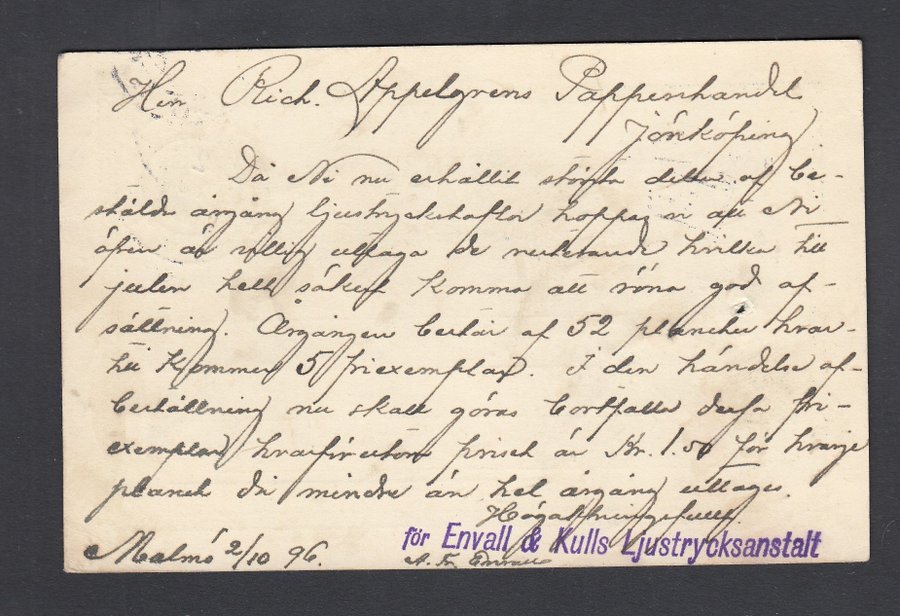 Herr Rich. Appelgrens Pappershandel
Jönköping
Då Ni nu erhållit största delen af be-
stälda årgång ljustryckstaflor hoppas vi att Ni
äfven är villig uttaga de resterande hvilka till
julen helt säkert komma att röna god af-
sättning. Årgången består af 52 plancher hvar-
till kommer 5 friexemplar. I den händelse af-
beställning nu skall göras bortfalla dessa fri-
exemplar hvarförutom priset är Kr. 1.50 för hvarje
planch då mindre än hel årgång uttages.
Högaktningsfullt
för Envall & Kulls Ljustrycksanstalt
Malmö 2/10 96. A. Fr. Envall